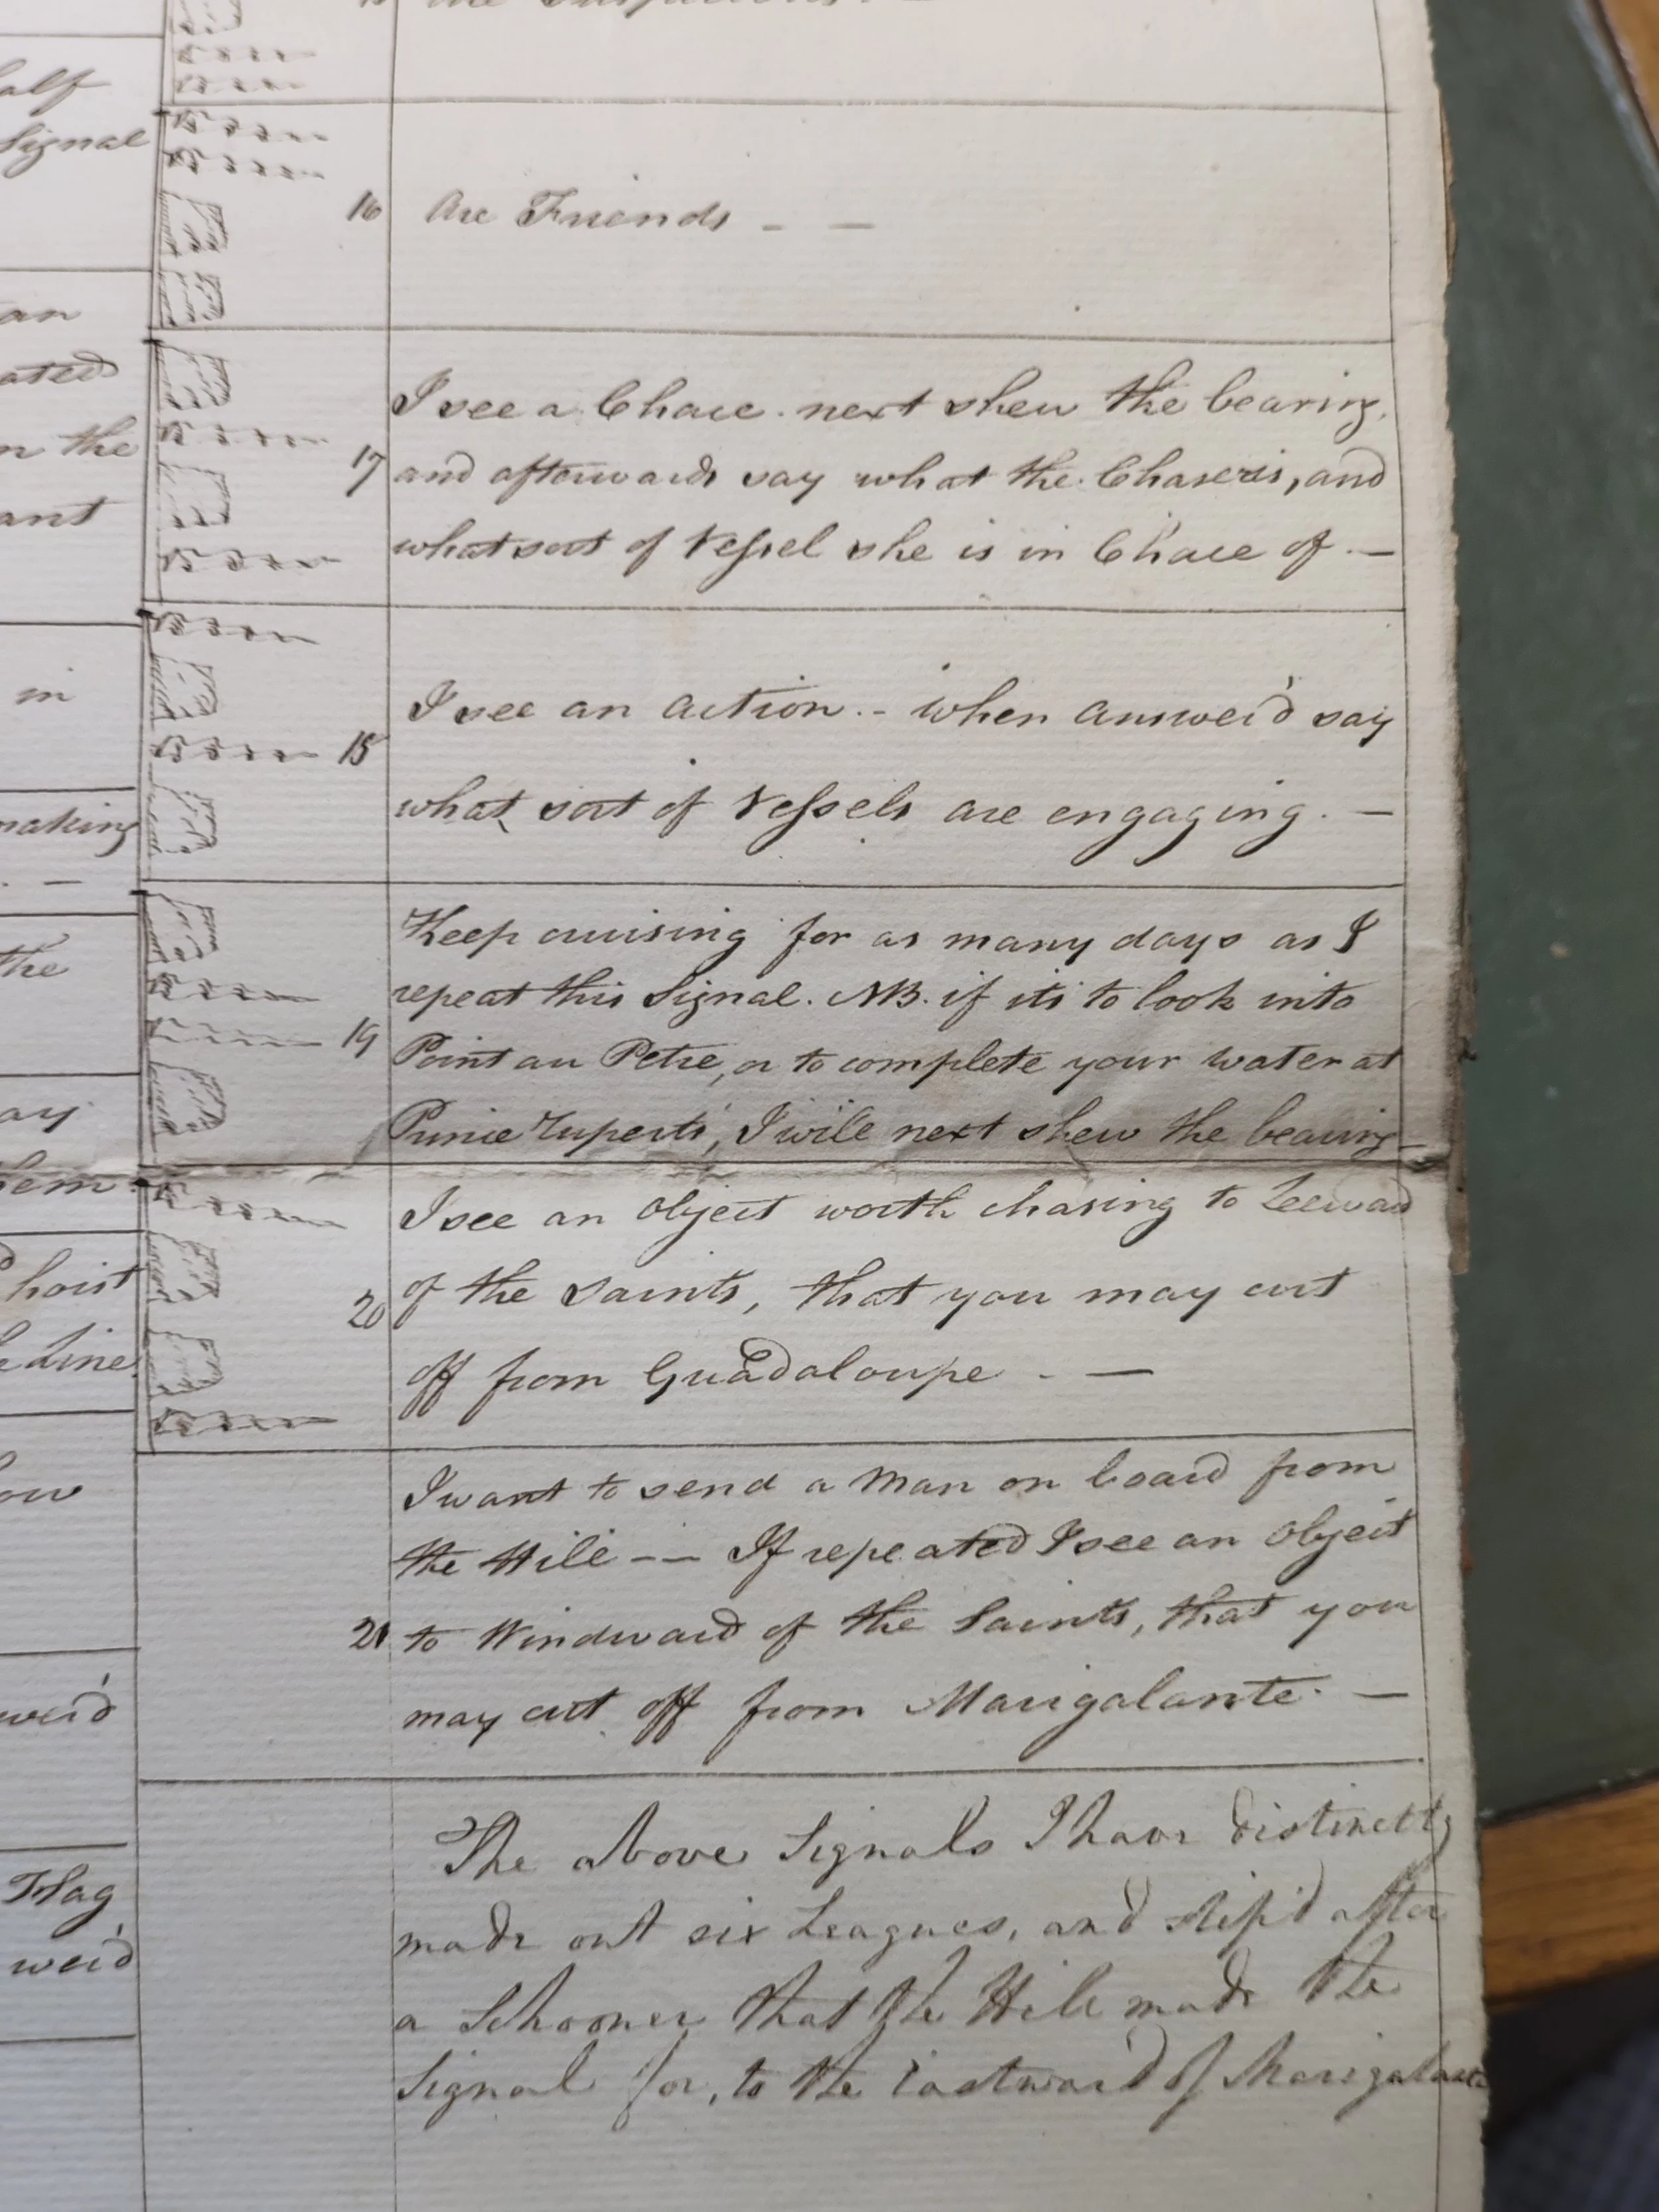 alf
Signal
an
ated
n the
ant
in
making
the
ay
hem.
hoist
Line
ow
wer'd
Flag
wer'd
16 are Friends - -
I see a Chace. next shew the bearing,
17 and afterwards say what the Chaser is, and
what sort of Vessel she is in Chace of. -
I see an action. - when answer'd say
18
what sort of Vessels are engaging. -
Keep cruising for as many days as I
repeat this Signal. NB. if its to look into
19 Point au Petre, or to complete your water at
Prince ruperts, I will next shew the bearing
I see an object worth chasing to Leeward
20 of the Saints, that you may cut
off from Guadaloupe. -
I want to send a Man on board from
the Hill -- If repeated I see an object
21 to Windward of the Saints, that you
may cut off from Marigalante. -
The above Signals I have distinctly
made out six Leagues, and slip'd after
a Schooner that the Hill made the
Signal for, to the Eastward of Marigalante